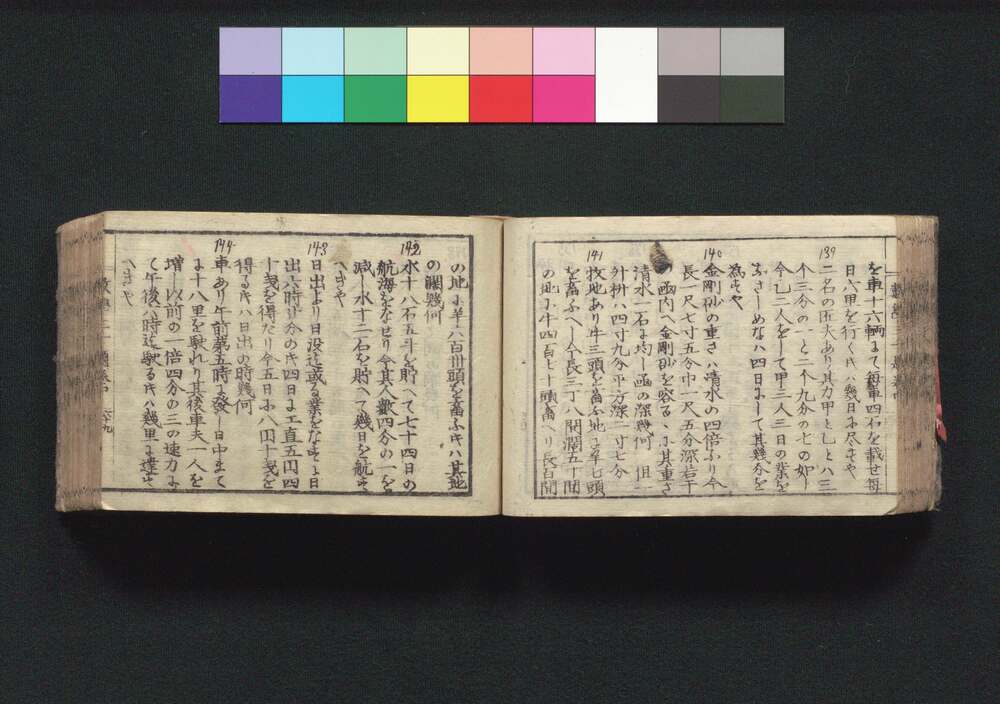 を車十六輌にて毎車四石を載せ毎
日六甲を行くキハ幾日ニ尽すや
139
二名の匠夫あり其力甲と乙とハ三
个三分の一と二个九分の七の如し
今乙二人をして甲三人三日の業を
なさしめなハ四日にして其幾分を
為すや
140
金剛砂の重さハ清水の四倍なり今
長一尺七寸五分巾一尺五分深若干
の凾内へ金剛砂を容るゝに其重さ
清水一石に均し凾の深幾何 但一
升枡ハ四寸九分平方深二寸七分
141
牧地あり牛三頭を畜ふ地に羊七頭
を畜ふへし今長三丁八間濶五十間
の地に牛四百七十頭畜へり長百間
の地に羊八百卅頭を畜ふキハ其地
の濶幾何
142
水十八石五斗を貯へて七十四日の
航海をなせり今其人数四分の一を
減し水十二石を貯へて幾日を航す
へきや
143
日出より日没迄或る業をなすに日
出六時り分のキ四日に工直五円四
十戔を得たり今五日に八円十戔を
得るキハ日出の時幾何
144
車あり午前第五時に發し日中まて
に十八里を駛れり其後車夫一人を
増し以前の一倍四分の三の速力に
て午後六時迄駛るキハ幾里に達す
へきや